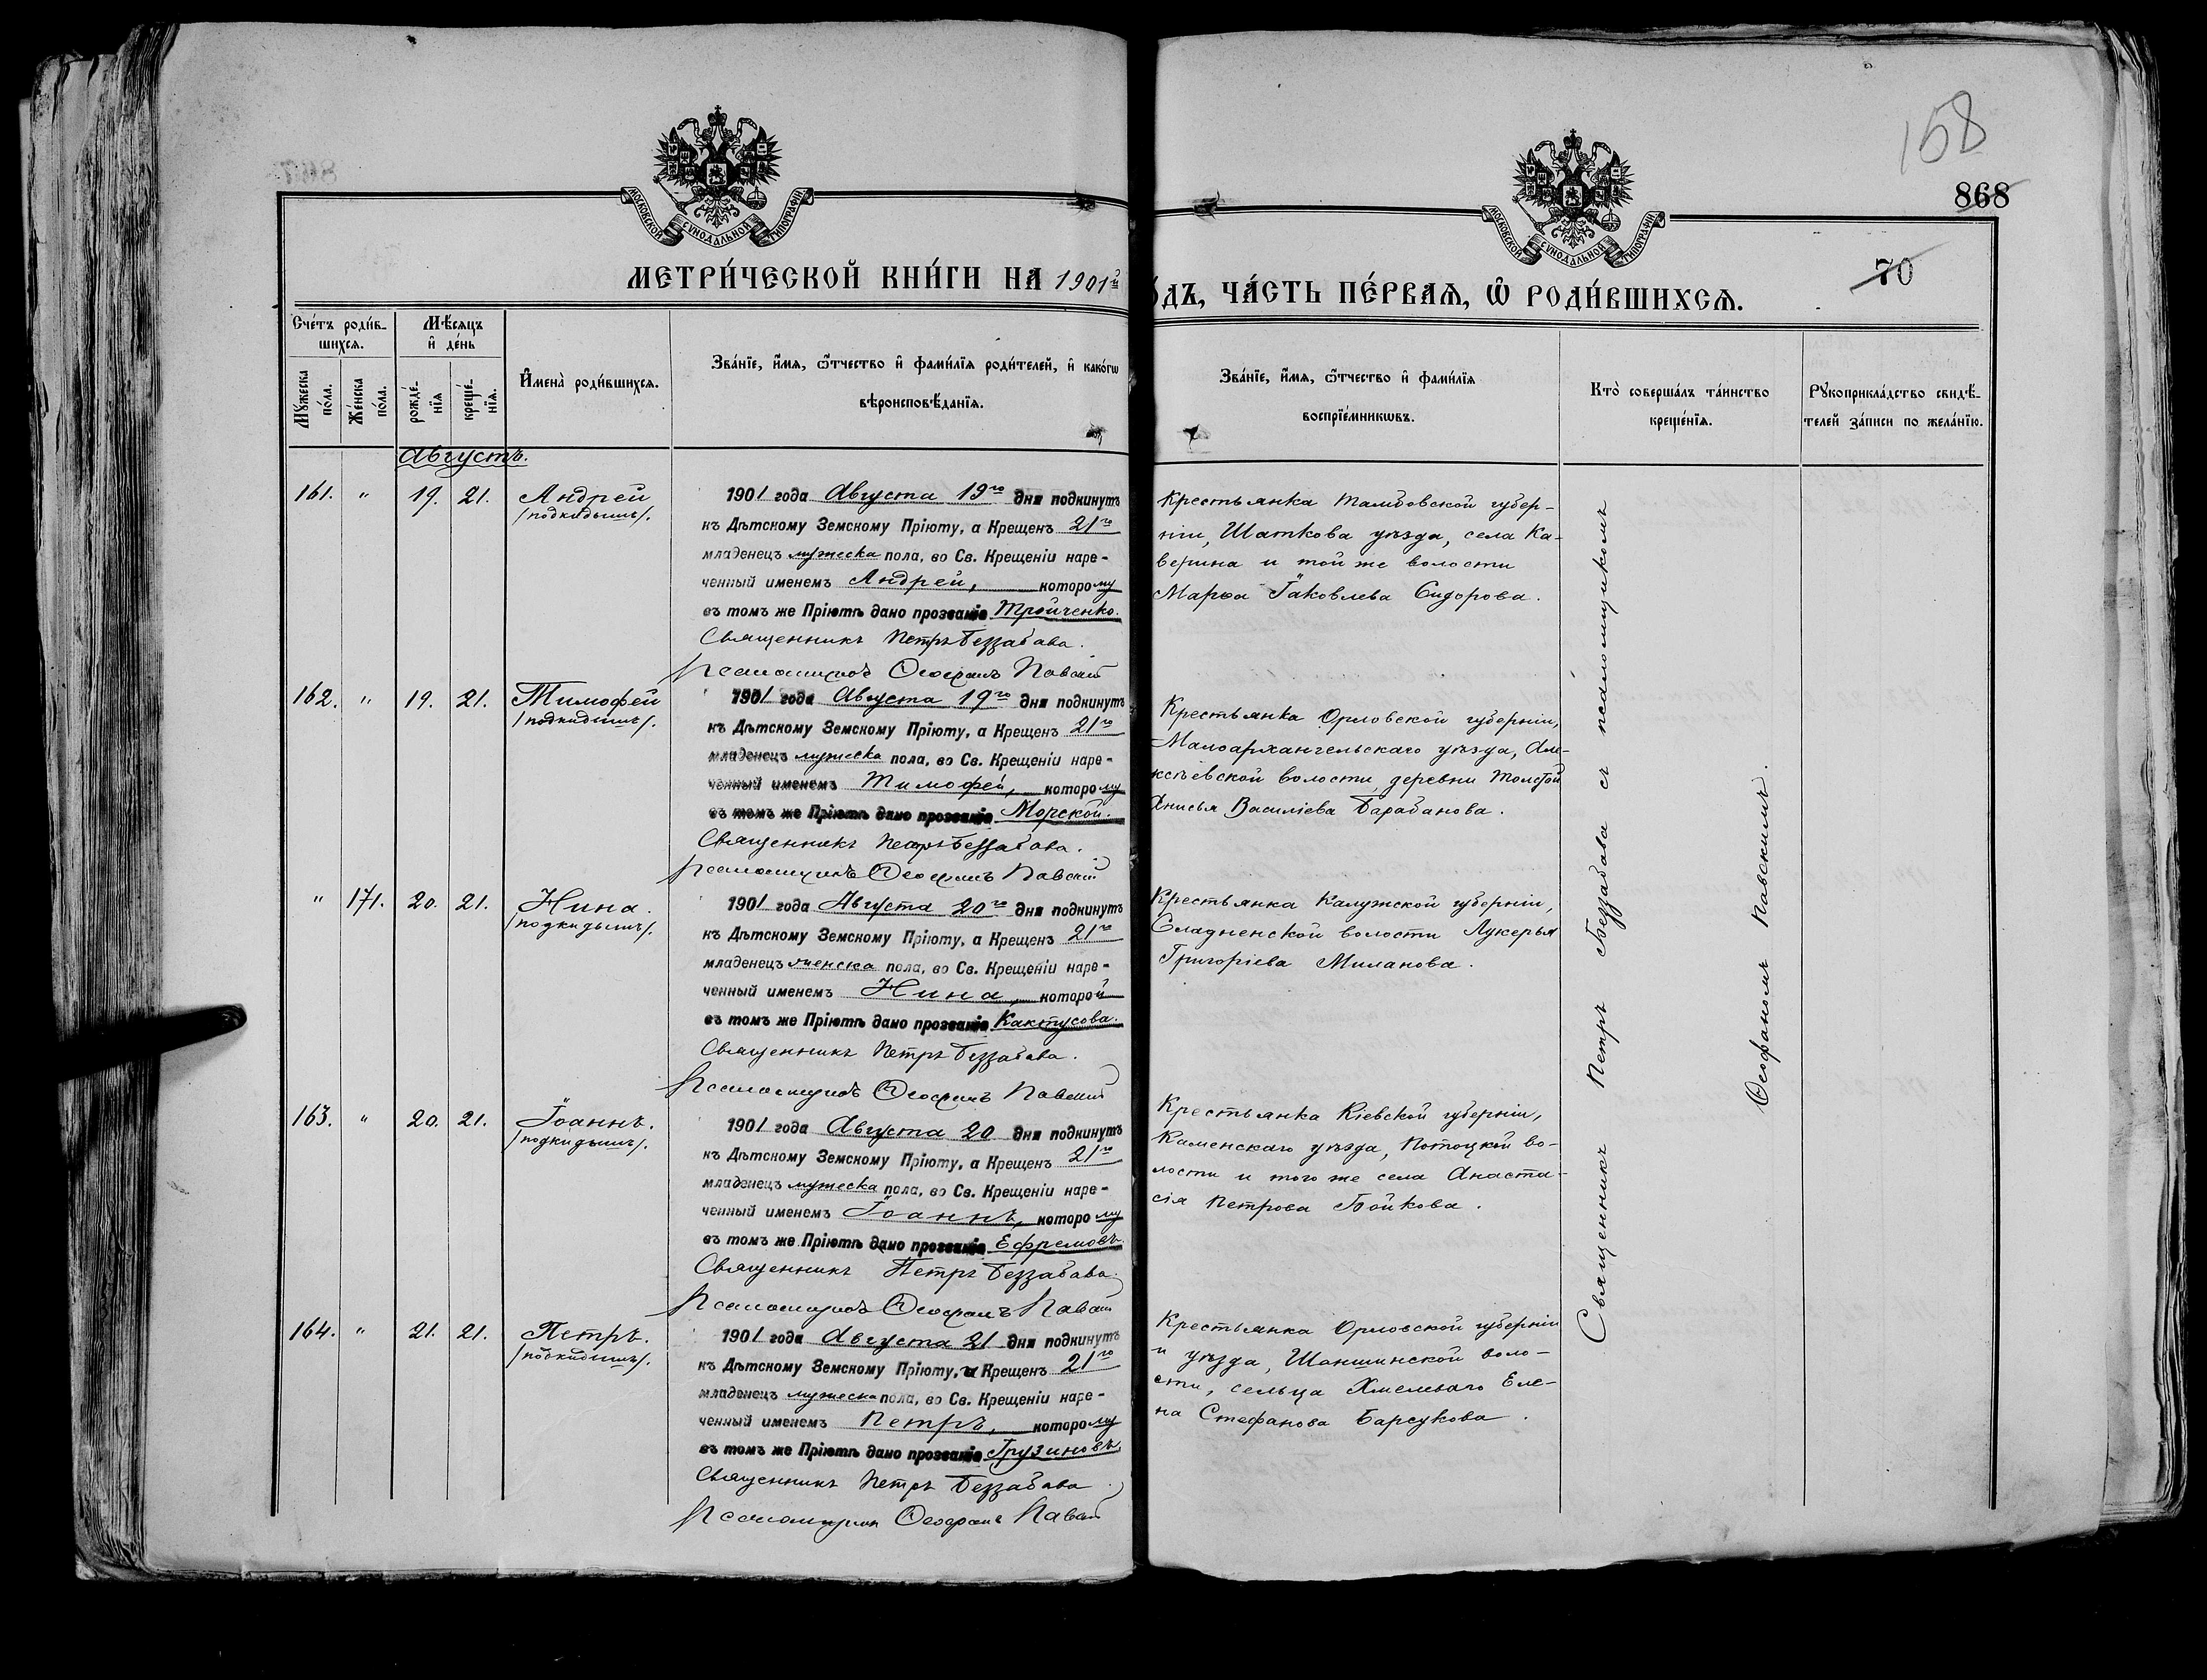 158
868
70
МОСКОВСКОЙ СѴНОДАЛЬНОЙ ТИПОГРАФІИ
МОСКОВСКОЙ СѴНОДАЛЬНОЙ ТИПОГРАФІИ
МЕТРИ́ЧЕСКОЙ КНИ́ГИ НА 1901й
о́дъ, ЧА́СТЬ ПЕ́РВАѦ, Ѡ҆ РОДИ́ВШИХСѦ.
Сче́тъ роди́в-
шихсѧ.
Мѣ́сѧцъ
и҆ де́нь
Мꙋ́жеска по́ла.
Же́нска по́ла.
рожде́-
нїѧ
креще́-
нїѧ.
И҆мена̀ роди́вшихсѧ.
Зва́нїе, и҆́мѧ, ѻ҆́тчество и҆ фами́лїѧ роди́телей, и҆ како́гѡ
вѣроисповѣ́данїѧ.
Зва́нїе, и҆́мѧ, ѻ҆́тчество и҆ фами́лїѧ
воспрїе́мникѡвъ.
Кто̀ соверша́лъ та́инство
креще́нїѧ.
Рꙋкоприкла́дство свидѣ́-
телей за́писи по жела́нїю.
Августъ.
161. " 19. 21. Андрей
/подкидышъ/.
1901 года Августа 19го дня подкинутъ
къ Дѣтскому Земскому Пріюту, а Крещенъ 21го
младенецъ мужеска пола, во Св. Крещеніи наре-
ченный именемъ Андрей, которому
въ томъ же Пріютѣ дано прозваніе Тройченко.
Священникъ Петръ Беззабава.
Псаломщикъ Ѳеофанъ Павскій
Крестьянка Тамбовской губер-
ніи, Шаткова уѣзда, села Ка-
верина и той же волости
Марѳа Іаковлева Сидорова.
162. " 19. 21. Тимофей
/подкидышъ/.
1901 года Августа 19го дня подкинутъ
къ Дѣтскому Земскому Пріюту, а Крещенъ 21го
младенецъ мужеска пола, во Св. Крещеніи наре-
ченный именемъ Тимофей, которому
въ томъ же Пріютѣ дано прозваніе Морской.
Священникъ Петръ Беззабава.
Псаломщикъ Ѳеофанъ Павскій
Крестьянка Орловской губерніи,
Малоархангельскаго уѣзда, Але-
ксѣевской волости, деревни Толстой
Анисья Василіева Барабанова.
" 171. 20. 21. Нина.
/подкидышъ/.
1901 года Августа 20го дня подкинутъ
къ Дѣтскому Земскому Пріюту, а Крещенъ 21го
младенецъ женска пола, во Св. Крещеніи наре-
ченный именемъ Нина, которой
въ томъ же Пріютѣ дано прозваніе Кактусова.
Священникъ Петръ Беззабава.
Псаломщикъ Ѳеофанъ Павскій
Крестьянка Калужской губерніи,
Сладненской волости Лукерья
Григоріева Миланова.
163. " 20. 21. Іоаннъ.
/подкидышъ/.
1901 года Августа 20 дня подкинутъ
къ Дѣтскому Земскому Пріюту, а Крещенъ 21го
младенецъ мужеска пола, во Св. Крещеніи наре-
ченный именемъ Іоаннъ, которому
въ томъ же Пріютѣ дано прозваніе Ефремовъ.
Священникъ Петръ Беззабава.
Псаломщикъ Ѳеофанъ Павскій
Крестьянка Кіевской губерніи,
Каменскаго уѣзда, Потоцкой во-
лости и того же села Анаста-
сія Петрова Бойкова.
164. " 21. 21. Петръ.
/подкидышъ/.
1901 года Августа 21 дня подкинутъ
къ Дѣтскому Земскому Пріюту, а Крещенъ 21го
младенецъ мужеска пола, во Св. Крещеніи наре-
ченный именемъ Петръ, которому
въ томъ же Пріютѣ дано прозваніе Грузиновъ.
Священникъ Петръ Беззабава
Псаломщикъ Ѳеофанъ Павскій
Крестьянка Орловской губерніи
и уѣзда, Шаншинской воло-
сти, сельца Хмелеваго Еле-
на Стефанова Барсукова.
Священникъ Петръ Беззабава съ псаломщикомъ
Ѳеофаномъ Павскимъ.